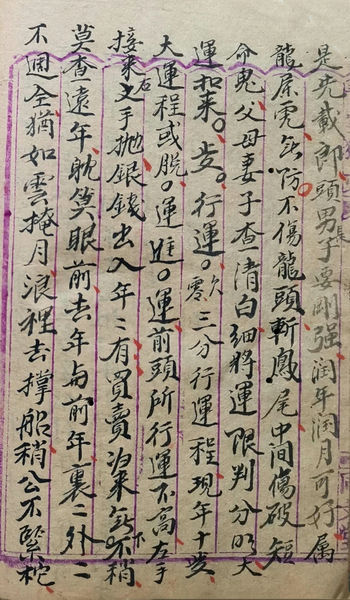 是先載郎頭男子要剛强润年润月可好属
龍屎虎㐫防不傷龍頭斬鳳尾中間傷破短
命鬼父母妻子查清白細將運限判分明大
運扣来歩行運欠三分行運程現年十歩
大運程或脱運進運前頭所行運不高左手
接来右手抛銀錢出入年二有買賣归来㐫下稍
莫查遠年耽笑眼前去年与前年裏二外二
不週全猶如雲掩月浪裡去撑船稍公不緊柁